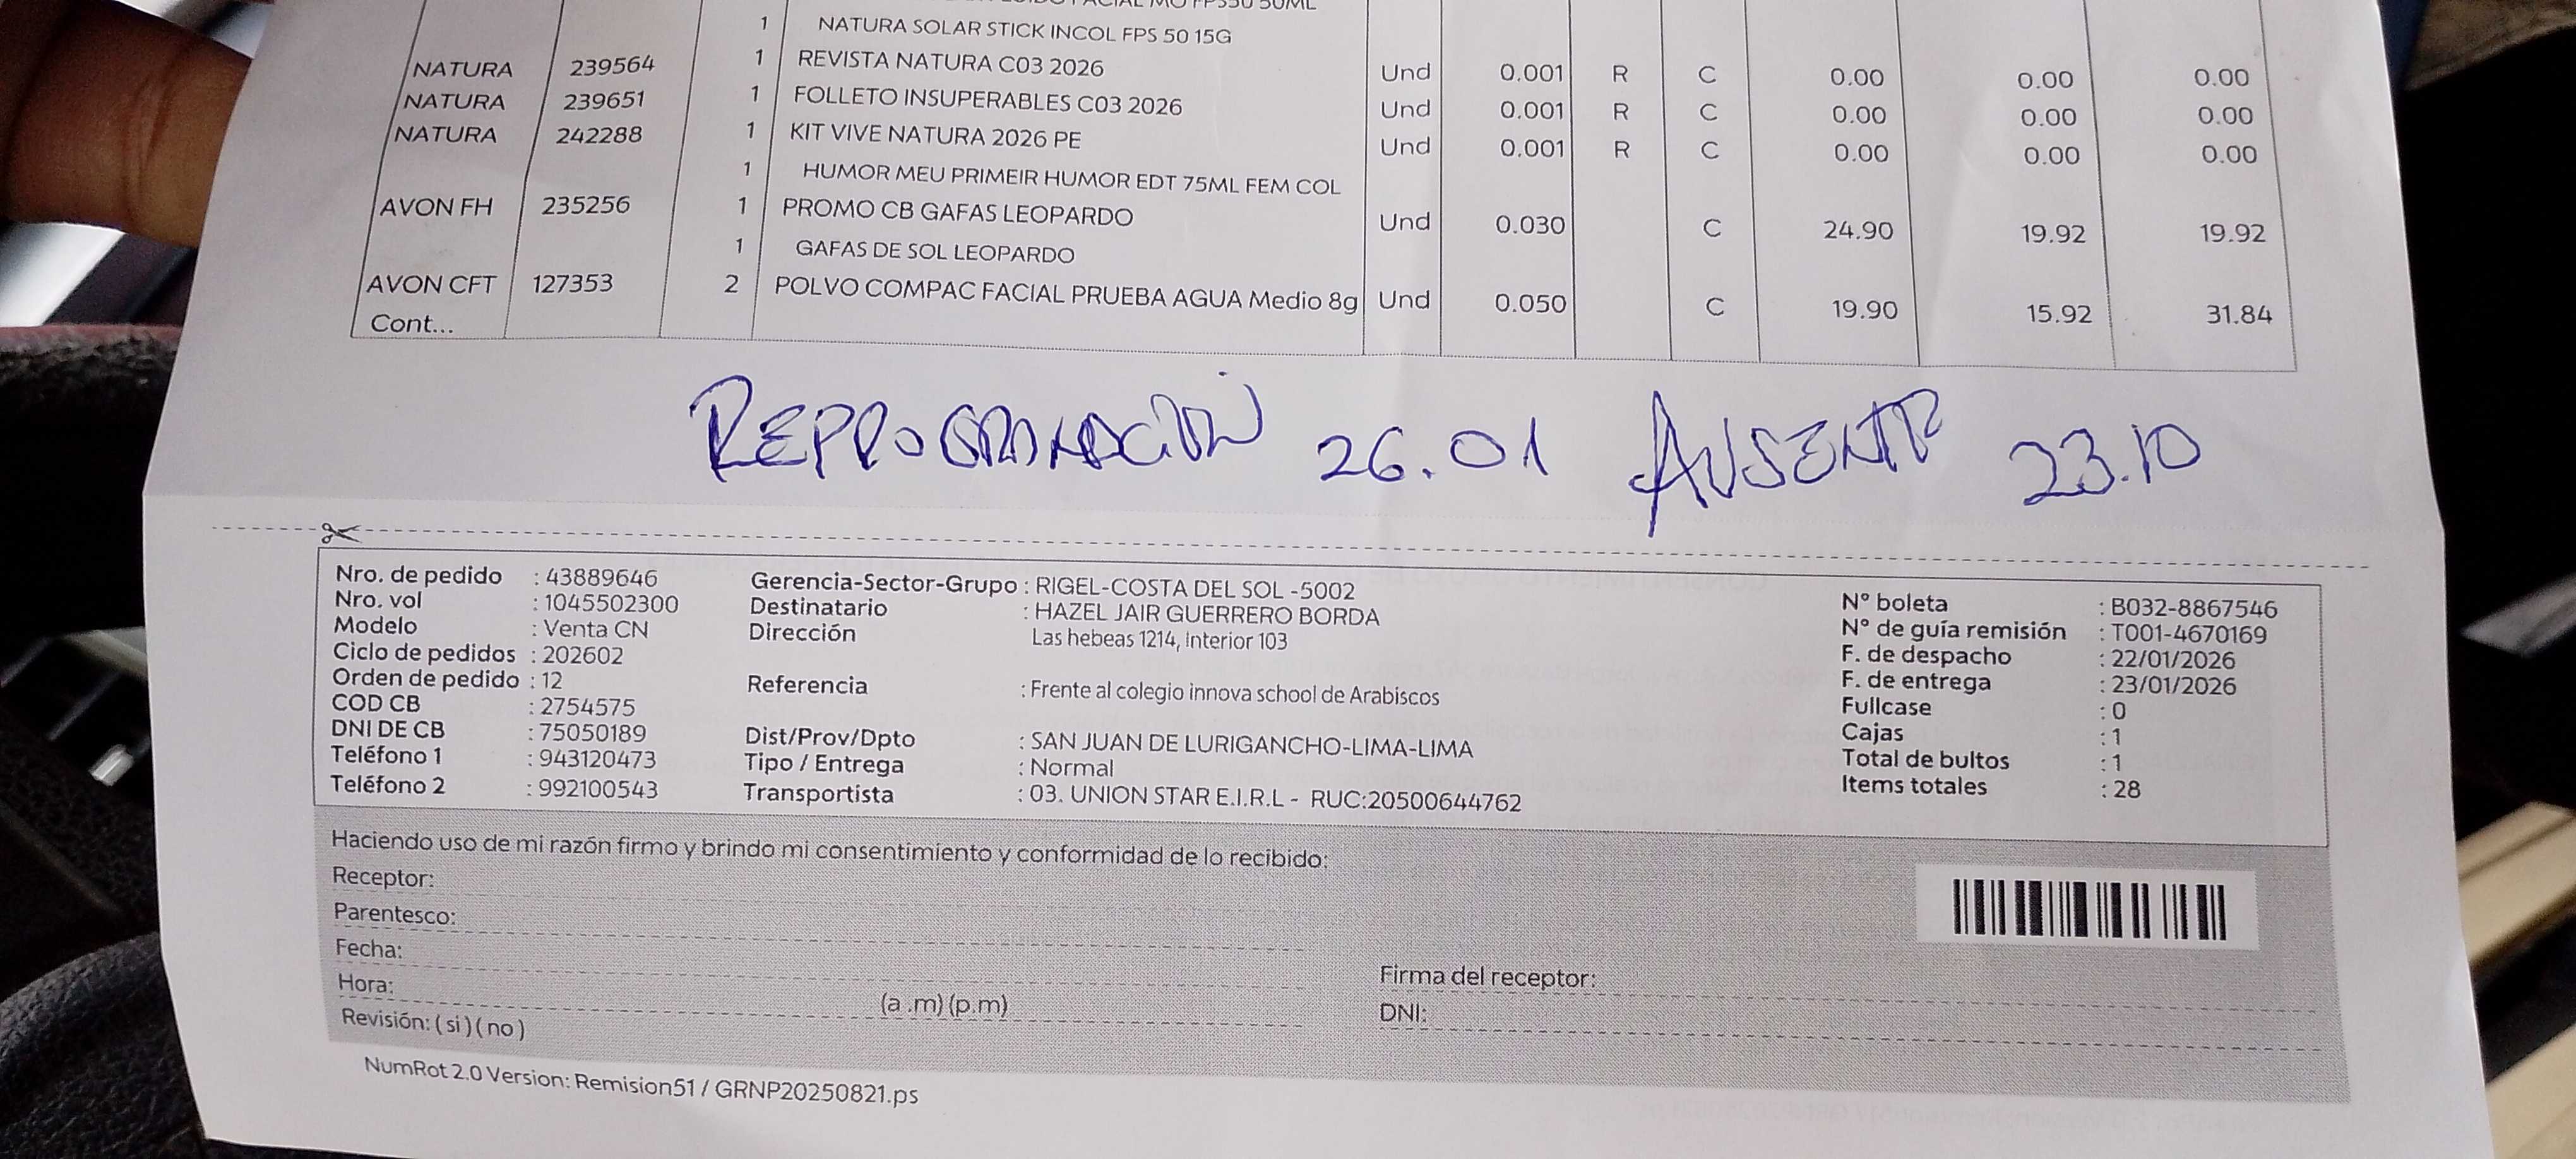 FPS50 50ML
1 NATURA SOLAR STICK INCOL FPS 50 15G
NATURA 239564 1 REVISTA NATURA C03 2026 Und 0.001 R C 0.00 0.00 0.00
NATURA 239651 1 FOLLETO INSUPERABLES C03 2026 Und 0.001 R C 0.00 0.00 0.00
NATURA 242288 1 KIT VIVE NATURA 2026 PE Und 0.001 R C 0.00 0.00 0.00
1 HUMOR MEU PRIMEIR HUMOR EDT 75ML FEM COL
AVON FH 235256 1 PROMO CB GAFAS LEOPARDO Und 0.030 C 24.90 19.92 19.92
1 GAFAS DE SOL LEOPARDO
AVON CFT 127353 2 POLVO COMPAC FACIAL PRUEBA AGUA Medio 8g Und 0.050 C 19.90 15.92 31.84
Cont...
REPROGRAMACIÓN 26.01 AUSENTE 23.10
Nro. de pedido : 43889646
Nro. vol : 1045502300
Modelo : Venta CN
Ciclo de pedidos : 202602
Orden de pedido : 12
COD CB : 2754575
DNI DE CB : 75050189
Teléfono 1 : 943120473
Teléfono 2 : 992100543
Gerencia-Sector-Grupo : RIGEL-COSTA DEL SOL -5002
Destinatario : HAZEL JAIR GUERRERO BORDA
Dirección Las hebeas 1214, Interior 103
Referencia : Frente al colegio innova school de Arabiscos
Dist/Prov/Dpto : SAN JUAN DE LURIGANCHO-LIMA-LIMA
Tipo / Entrega : Normal
Transportista : 03. UNION STAR E.I.R.L - RUC:20500644762
N° boleta : B032-8867546
N° de guía remisión : T001-4670169
F. de despacho : 22/01/2026
F. de entrega : 23/01/2026
Fullcase : 0
Cajas : 1
Total de bultos : 1
Items totales : 28
Haciendo uso de mi razón firmo y brindo mi consentimiento y conformidad de lo recibido:
Receptor:
Parentesco:
Fecha:
Hora: (a .m) (p.m)
Revisión: ( si ) ( no )
Firma del receptor:
DNI:
NumRot 2.0 Version: Remision51 / GRNP20250821.ps